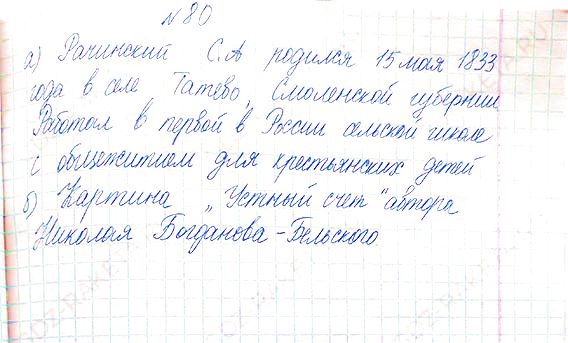 №80
а) Рачинский С.А родился 15 мая 1833
года в селе Татево, Смоленской губернии
Работал в первой в России сельской школе
с общежитием для крестьянских детей
б) Картина „Устный счет" автора
Николая Богданова-Бельского